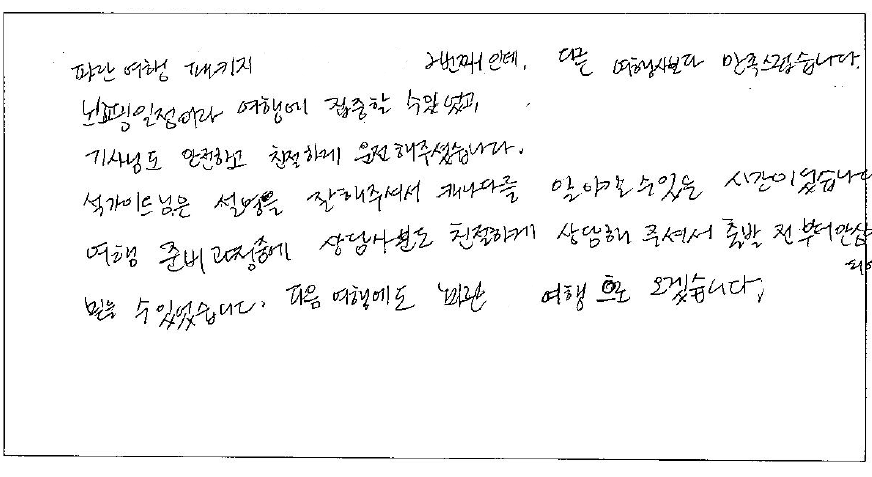 파란여행 패키지 2번째인데, 다른 여행사보다 만족스럽습니다.
노쇼핑일정이라 여행에 집중할 수 있었고,
기사님도 안전하고 친절하게 운전해주셨습니다.
석가이드님은 설명을 잘해주셔서 캐나다를 알아갈 수 있는 시간이었습니다
여행 준비과정중에 상담사분도 친절하게 상담해 주셔서 출발 전부터 안심
믿을 수 있었습니다. 다음 여행에도 파란 여행으로 오겠습니다,